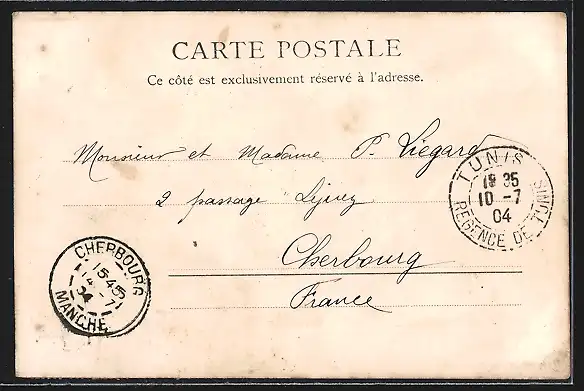 CARTE POSTALE
Ce côté est exclusivement réservé à l'adresse.
Monsieur et Madame P. Liegard
2 passage
Cherbourg
France
TUNIS
18 35
10 -7
04
REGENCE DE TUNIS
CHERBOURG
15 45
14 -7
04
MANCHE